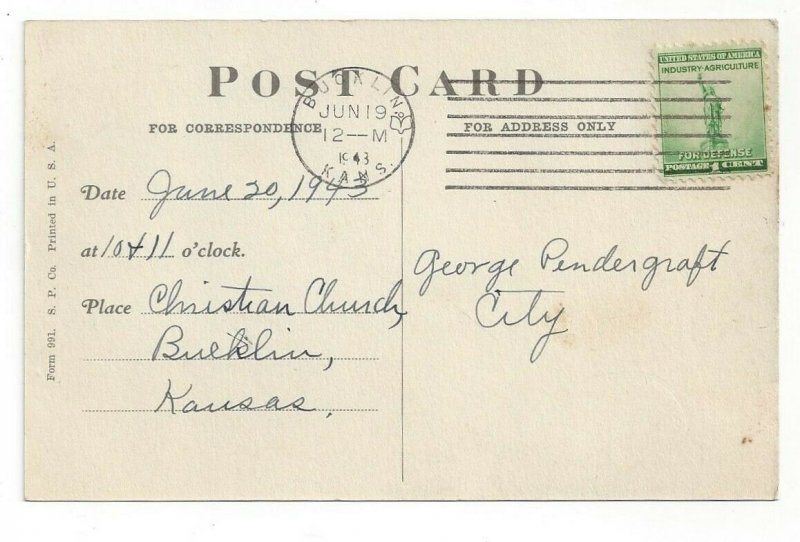 POST CARD
BUCKLIN
JUN 19
12—M
1943
KANS.
UNITED STATES OF AMERICA
INDUSTRY-AGRICULTURE
FOR DEFENSE
POSTAGE 1 CENT
FOR CORRESPONDENCE
FOR ADDRESS ONLY
Date June 20, 1943
at 10 & 11 o'clock.
Place Christian Church,
Bucklin,
Kansas,
George Pendergraft
City
Form 991. S. P. Co. Printed in U. S. A.